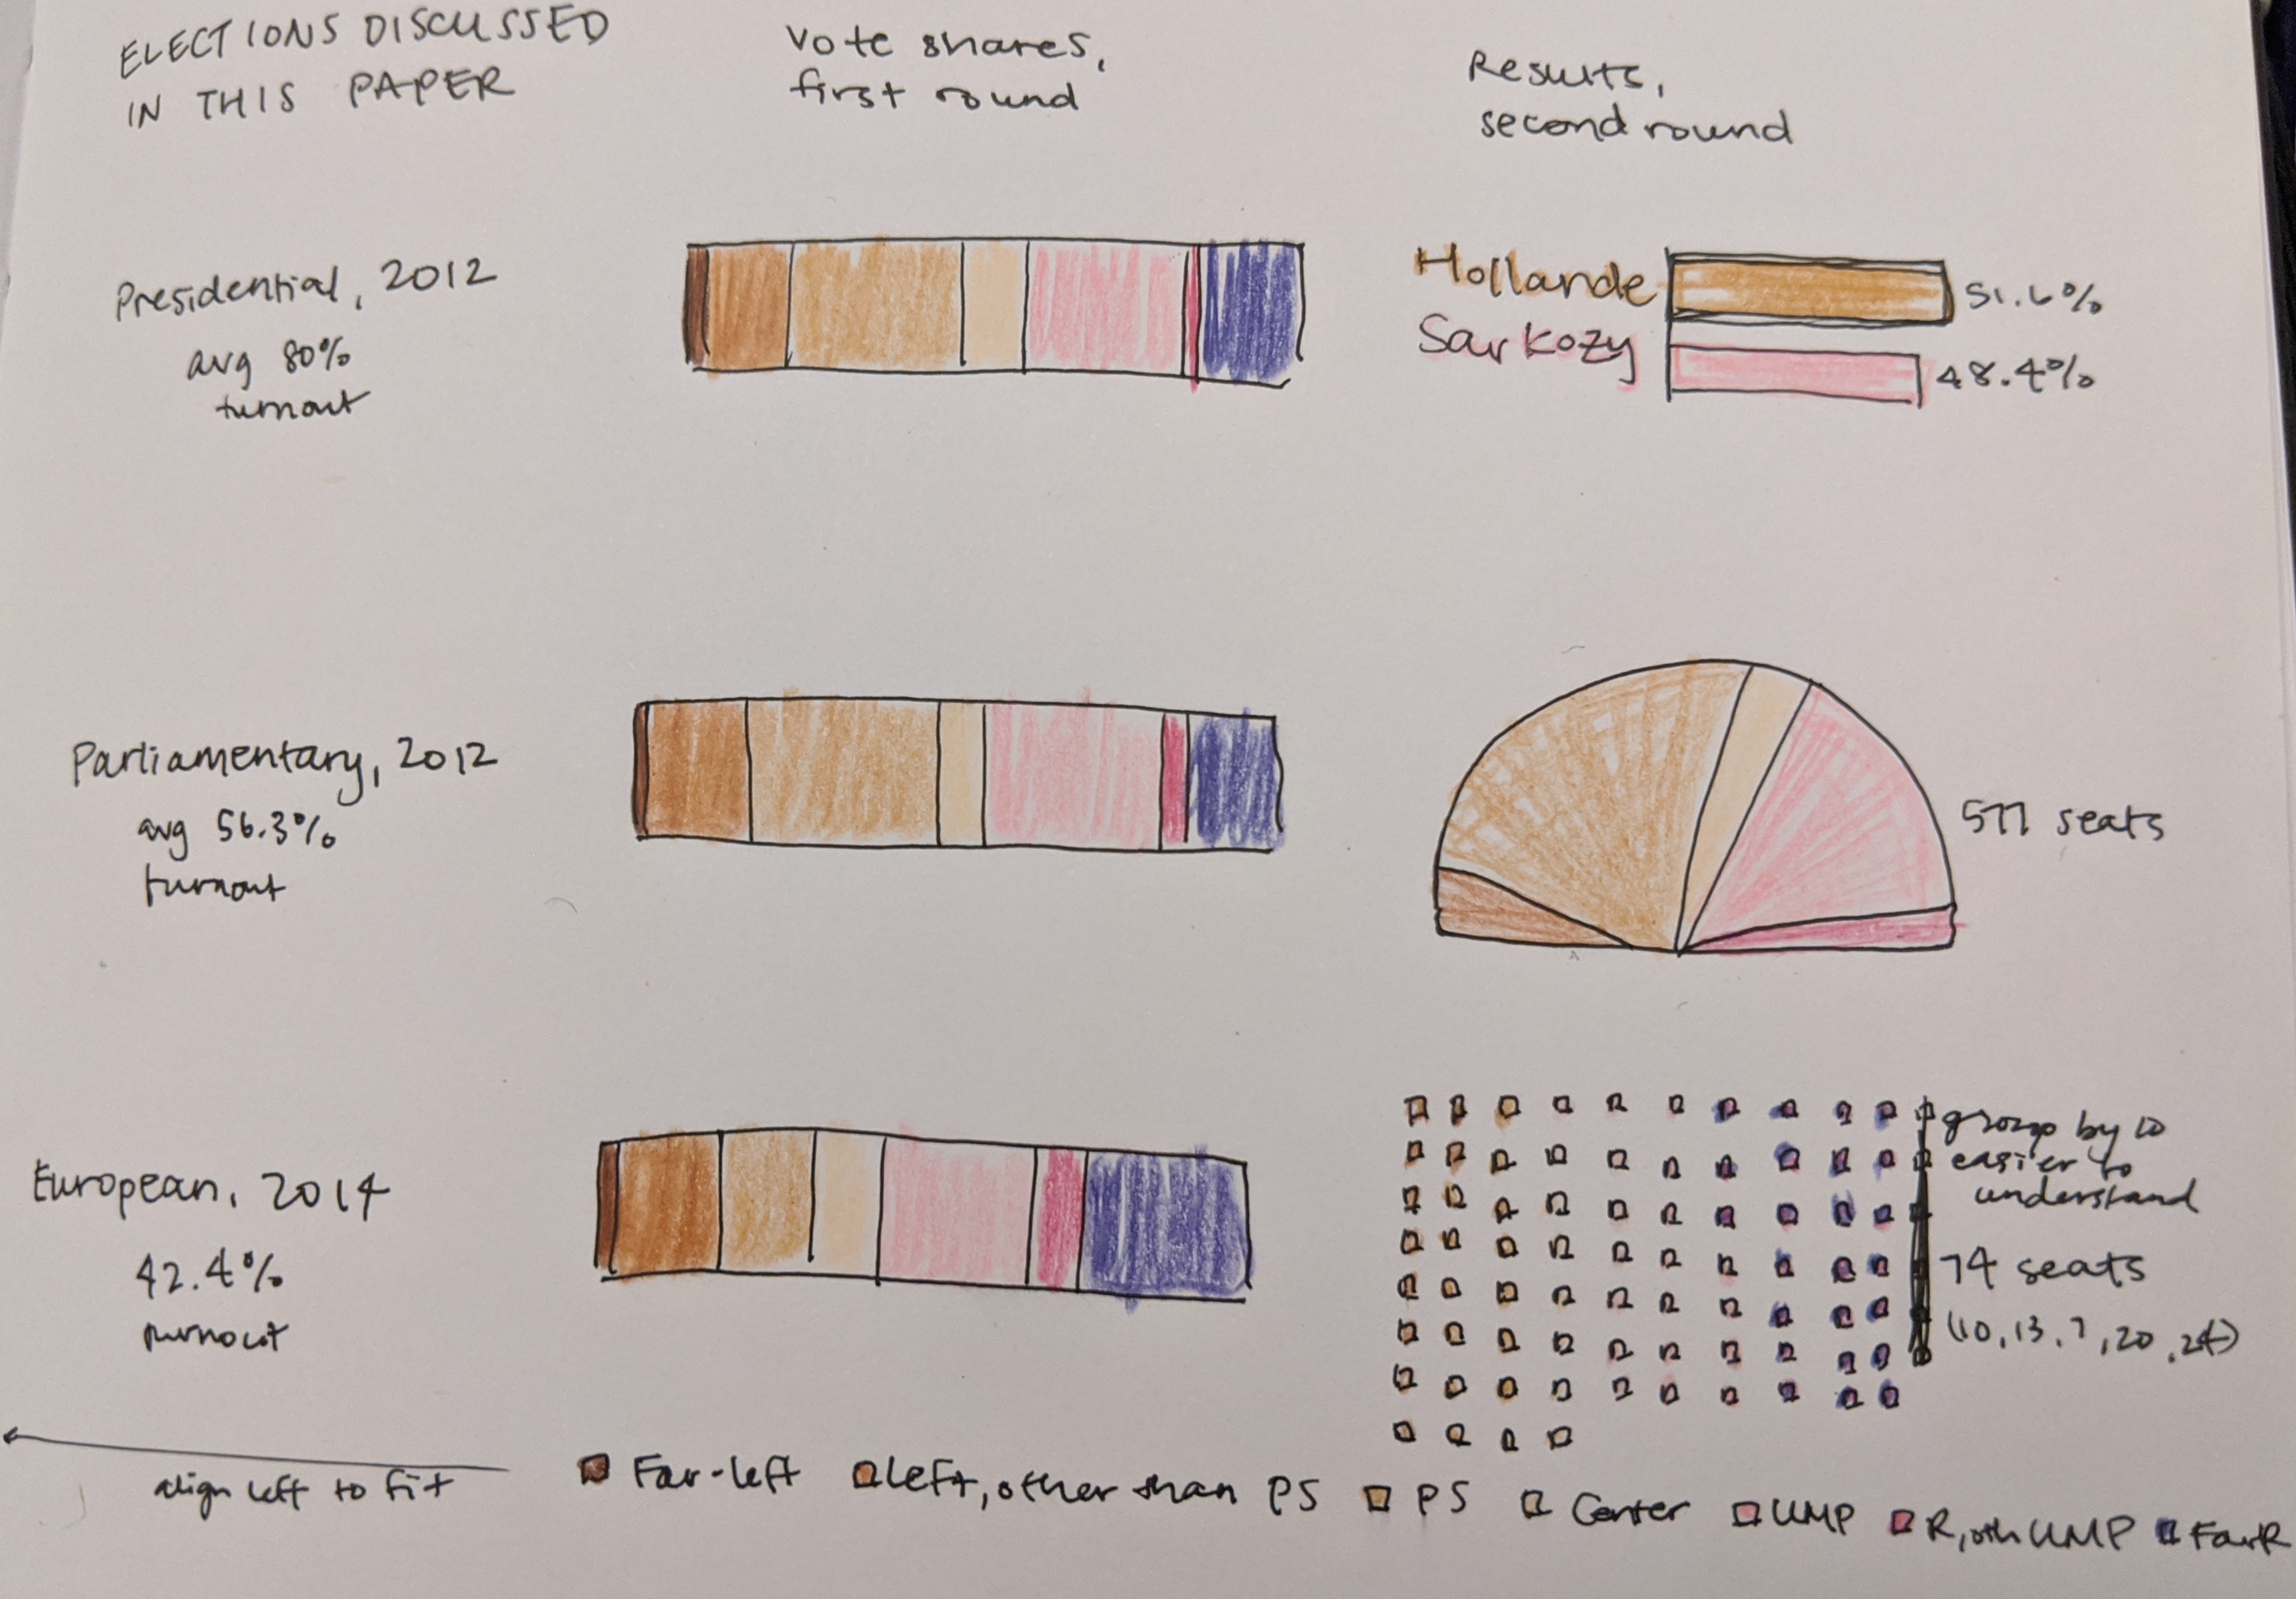 ELECTIONS DISCUSSED
IN THIS PAPER
Vote shares,
first round
Results,
second round
Presidential, 2012
avg 80%
turnout
Hollande
51.6%
Sarkozy
48.4%
Parliamentary, 2012
avg 56.3%
turnout
577 seats
European, 2014
42.4%
turnout
group by 10
easier to
understand
74 seats
(10, 13, 7, 20, 24)
align left to fit
Far-left
Left, other than PS
PS
Center
UMP
R, oth UMP
FarR